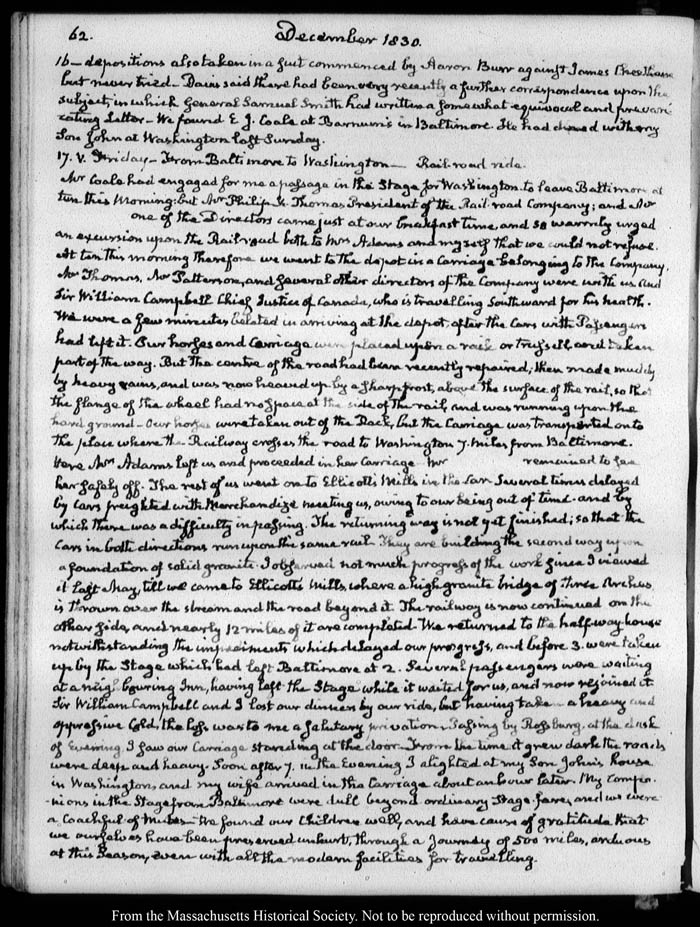 62. December 1830.
16 — depositions also taken in a suit commenced by Aaron Burr against James Cheetham
but never tried — Davis said there had been very recently a further correspondence upon the
subject, in which General Samuel Smith had written a somewhat equivocal and prevari-
cating Letter — We found E. J. Coale at Barnum's in Baltimore. He had dined with my
Son John at Washington last Sunday.
17. V. Friday — From Baltimore to Washington — Rail-road ride.
Mr Coale had engaged for me a passage in the Stage for Washington to leave Baltimore at
ten this Morning; but Mr Philip E. Thomas President of the Rail-road Company; and Mr
one of the Directors came just at our breakfast time, and so warmly urged
an excursion upon the Railroad both to Mrs Adams and myself that we could not refuse.
At ten this morning therefore we went to the depot in a Carriage belonging to the Company.
Mr Thomas, Mr Patterson, and several other directors of the Company were with us and
Sir William Campbell Chief Justice of Canada, who is travelling Southward for his health.
We were a few minutes belated in arriving at the depot, after the Cars with Passengers
had left it. Our horses and Carriage were placed upon a rail or trussell, and taken
part of the way. But the centre of the road had been recently repaired, then made muddy
by heavy rains, and was now heaved up by a sharp frost, above the surface of the rail, so that
the flange of the wheel had no space at the side of the rail, and was running upon the
hard ground — Our horses were taken out of the Rack, but the Carriage was transported on to
the place where the Railway crosses the road to Washington 7. miles from Baltimore.
Here Mrs Adams left us and proceeded in her Carriage Mr remained to see
her safely off. The rest of us went on to Ellicott's Mills in the Car. Several times delayed
by Cars freighted with Merchandize meeting us, owing to our being out of time — and by
which there was a difficulty in passing. The returning way is not yet finished; so that the
Cars in both directions run upon the same rail. They are building the second way upon
a foundation of solid granite. I observed not much progress of the work since I viewed
it last May, till we came to Ellicotts Mills, where a high granite bridge of three Arches
is thrown over the stream and the road beyond it. The railway is now continued on the
other side, and nearly 12 miles of it are completed — We returned to the half-way-house
notwithstanding the impediments which delayed our progress, and before 3. were taken
up by the Stage which had left Baltimore at 2. Several passengers were waiting
at a neighbouring Inn, having left the Stage while it waited for us, and now rejoined it
Sir William Campbell and I lost our dinners by our ride, but having taken a heavy and
oppressive Cold, the loss was to me a salutary privation — Passing by Rossburg, at the dusk
of Evening, I saw our Carriage standing at the door — From the time it grew dark the roads
were deep and heavy. Soon after 7. in the Evening I alighted at my Son John's house
in Washington, and my wife arrived in the Carriage about an hour later. My compa-
nions in the Stage from Baltimore were dull beyond ordinary Stage fare, and we were
a Coachful of Mutes — We found our Children well, and have cause of gratitude that
we ourselves have been preserved unhurt, through a Journey of 500 miles, arduous
at this Season, even with all the modern facilities for travelling.
From the Massachusetts Historical Society. Not to be reproduced without permission.